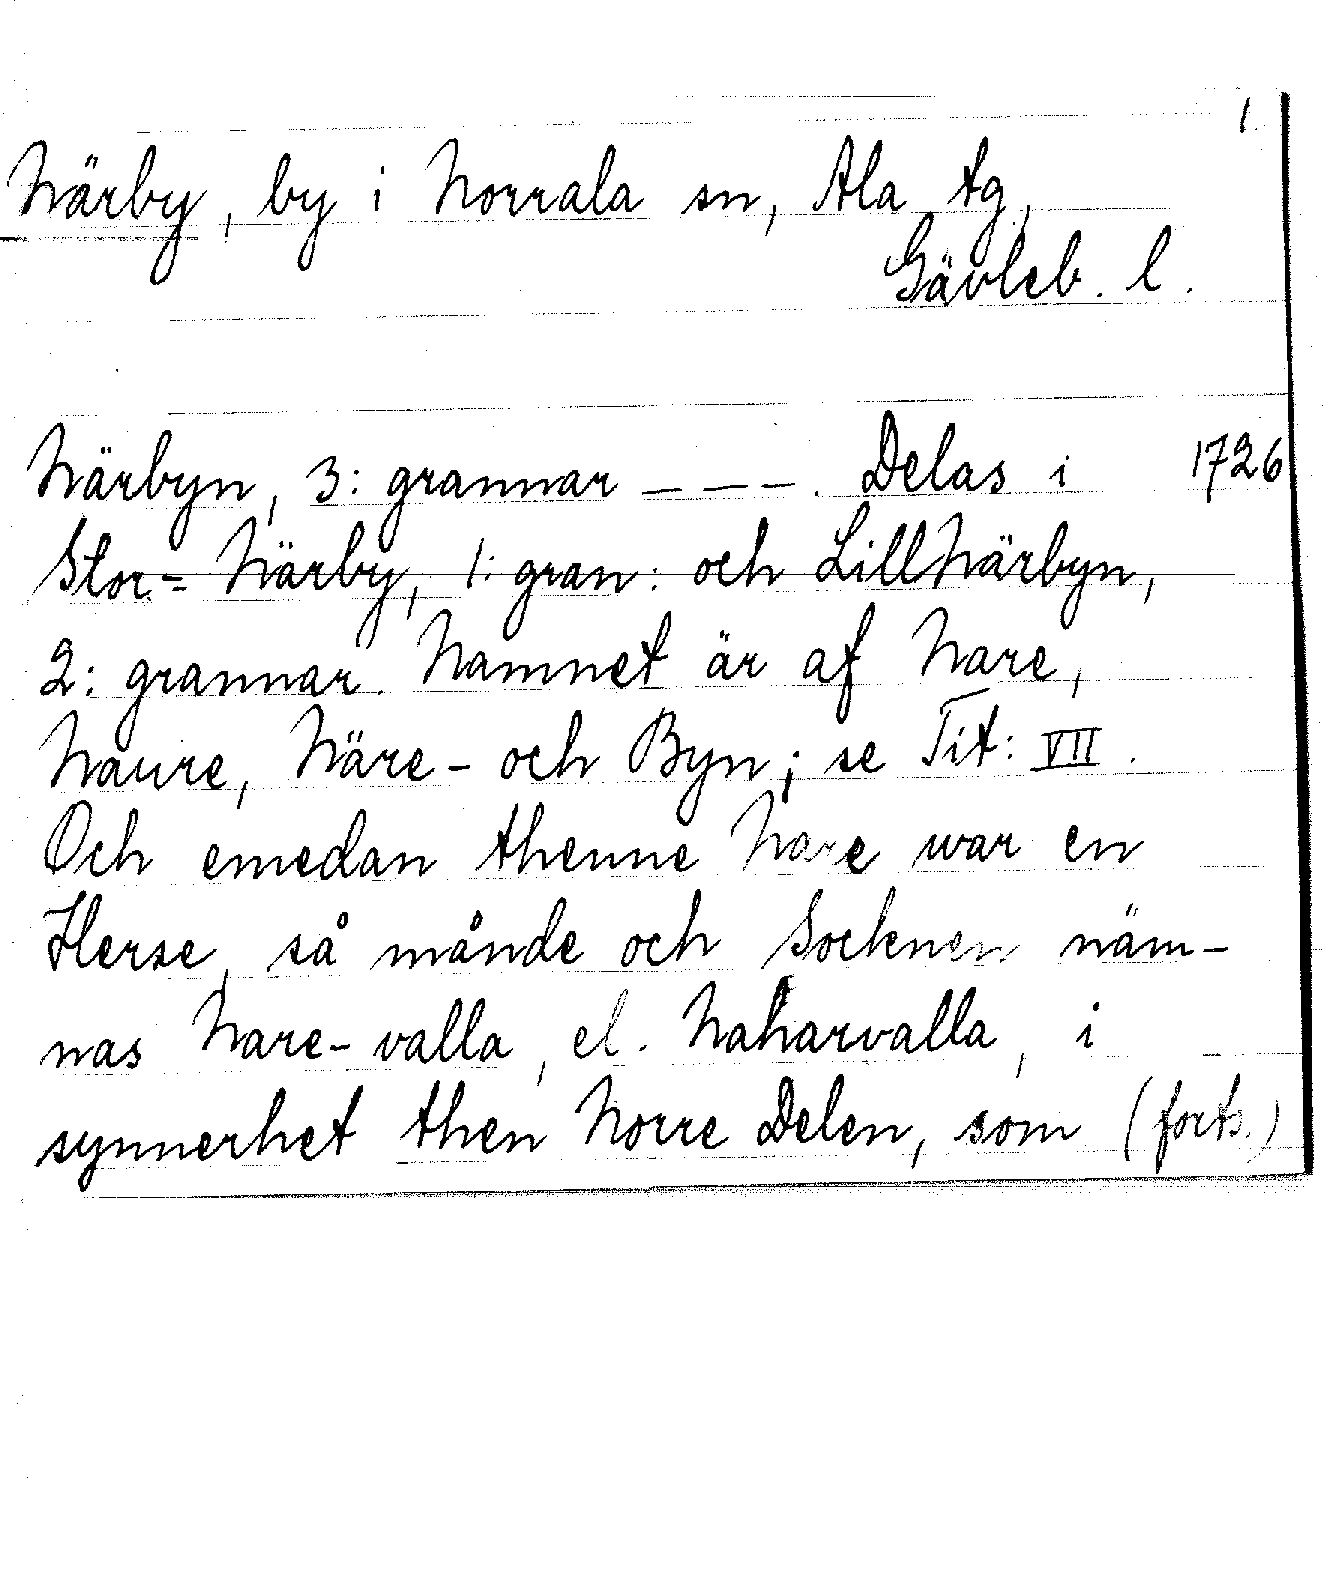 1.
Närby, by i Norrala sn, Ala tg,
Gävleb. l.
Närbyn, 3: grannar – – – . Delas i 1726
Stor-Närby, 1: gran: och LillNärbyn,
2: grannar. Namnet är af Nare,
Naure, Näre- och Byn; se Tit: VII.
Och emedan thenne Nare war en
Herse, så månde och Socknen näm-
nas Nare-valla, el. Naharvalla, i
synnerhet then Norre Delen, som (forts.)